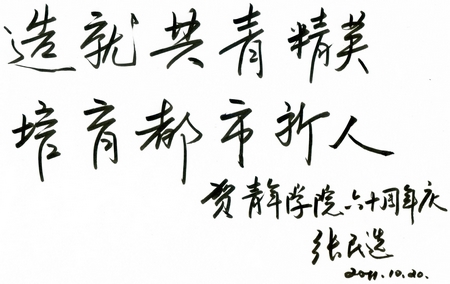 造就共青精英
培育都市新人
贺青年学院六十周年庆
张民选
2011.10.20.